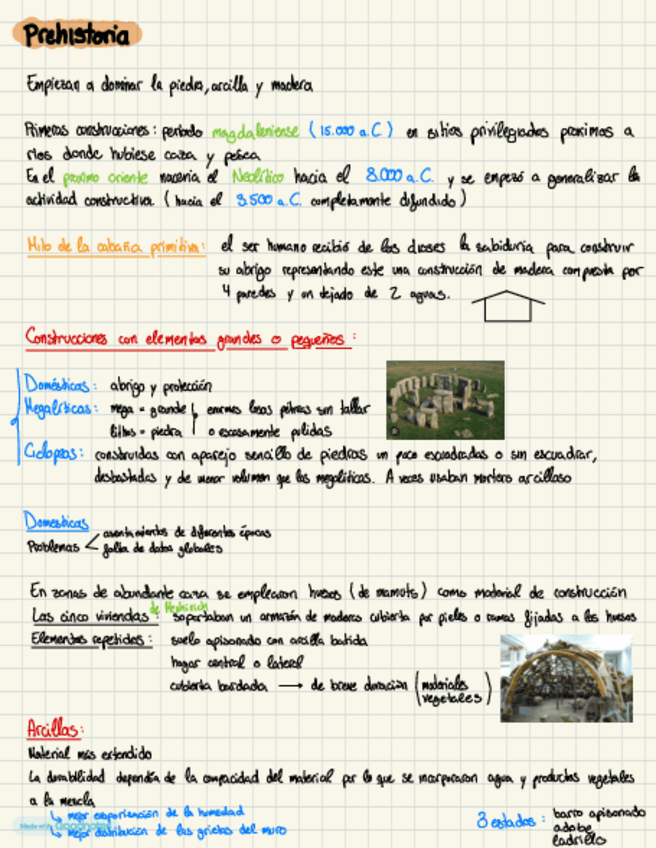 Prehistoria
Empiezan a dominar la piedra, arcilla y madera
Primeras construcciones: período magdaleniense (15.000 a.C) en sitios privilegiados proximos a
rios donde hubiese caza y pesca
En el proximo oriente nacería el Neolítico hacia el 8.000 a.C. y se empezó a generalizar la
actividad constructiva (hacia el 3.500 a.C. completamente difundido)
Mito de la cabaña primitiva: el ser humano recibió de los dioses la sabiduría para construir
su abrigo representando este una construcción de madera compuesta por
4 paredes y un tejado de 2 aguas.
Construcciones con elementos grandes o pequeños:
Domésticas: abrigo y protección
Megalíticas: mega = grande enormes losas pétreas sin tallar
lithos = piedra o escasamente pulidas
Ciclopeas: construidas con aparejo sencillo de piedras un poco escuadradas o sin escuadrar,
desbastadas y de menor volumen que las megalíticas. A veces usaban mortero arcilloso
Domesticas
Problemas asentamientos de diferentes épocas
falta de datos globales
En zonas de abundante caza se emplearon huesos (de mamuts) como material de construcción
Las cinco viviendas de : soportaban un armazón de maderas cubierta por pieles o ramas fijadas a los huesos
Elementos repetidos: suelo apisonado con arcilla batida
hogar central o lateral
cubierta bardada → de breve duración (materiales
vegetales)
Arcillas:
Material más extendido
La durabilidad dependía de la compacidad del material por lo que se incorporaron agua y productos vegetales
a la mezcla
↳ mejor evaporización de la humedad
↳ mejor distribución de las grietas del muro
3 estados: barro apisonado
adobe
ladrillo
Made with Goodnotes